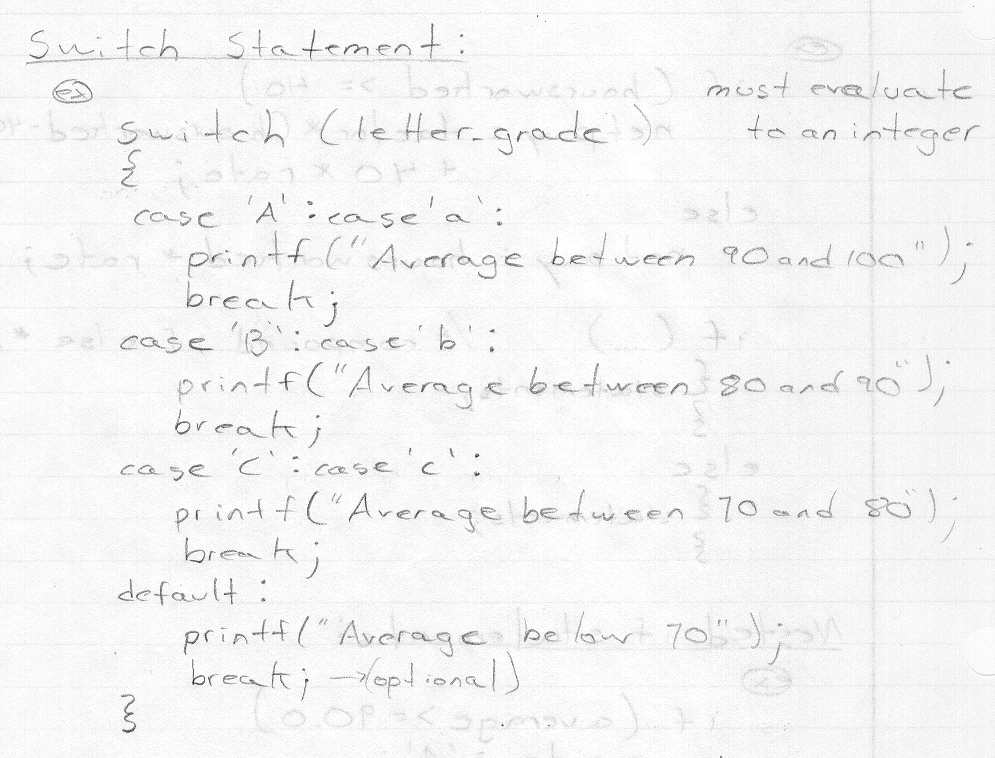 Switch Statement:
ex must evaluate
switch (letter-grade) to an integer
{
case 'A': case 'a':
printf("Average between 90 and 100");
break;
case 'B': case 'b':
printf("Average between 80 and 90");
break;
case 'C': case 'c':
printf("Average between 70 and 80");
break;
default:
printf("Average bellow 70");
break; →(optional)
}